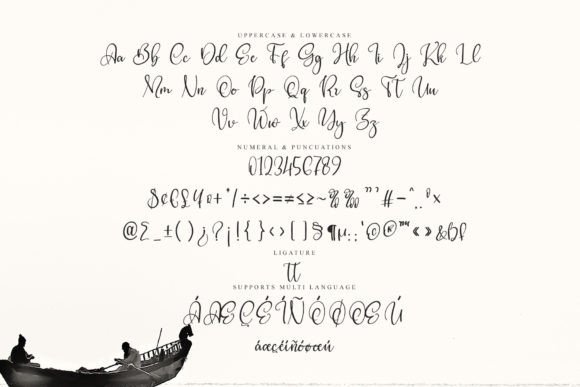 UPPERCASE & LOWERCASE
Aa Bb Cc Dd Ee Ff Gg Hh Ii Jj Kk Ll
Mm Nn Oo Pp Qq Rr Ss Tt Uu
Vv Ww Xx Yy Zz
NUMERAL & PUNCUATIONS
0123456789
$¢£¥°+*/÷<>=≠≤≥~%‰"'#-^.,°×
@Σ_±()¿?¡!{}‹›[]§¶µ:;'©®™«»&
LIGATURE
tt
SUPPORTS MULTI LANGUAGE
ÁÆÇÉÍÑÓØŒÚ
áæçéíñóøœú